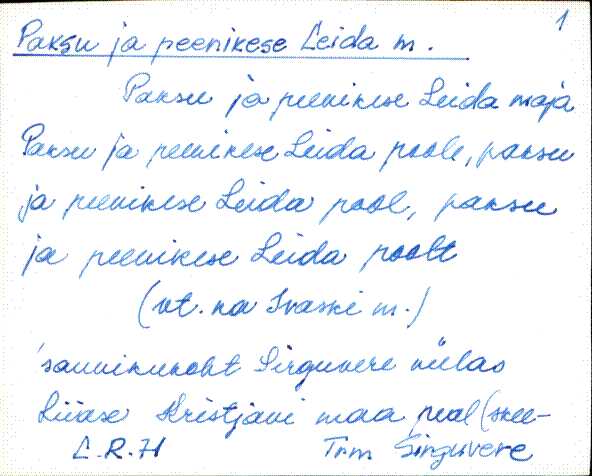 1
Paksu ja peenikese Leida m.
Paksu ja peenikese Leida maja
Paksu ja peenikese Leida poole, paksu
ja peenikese Leida pool, paksu
ja peenikese Leida poolt
(vt. ka Ivaski m.)
saunikukoht Sirguvere külas
Liiase Kristjani maa peal (skee-
L.R.H Trm Sirguvere